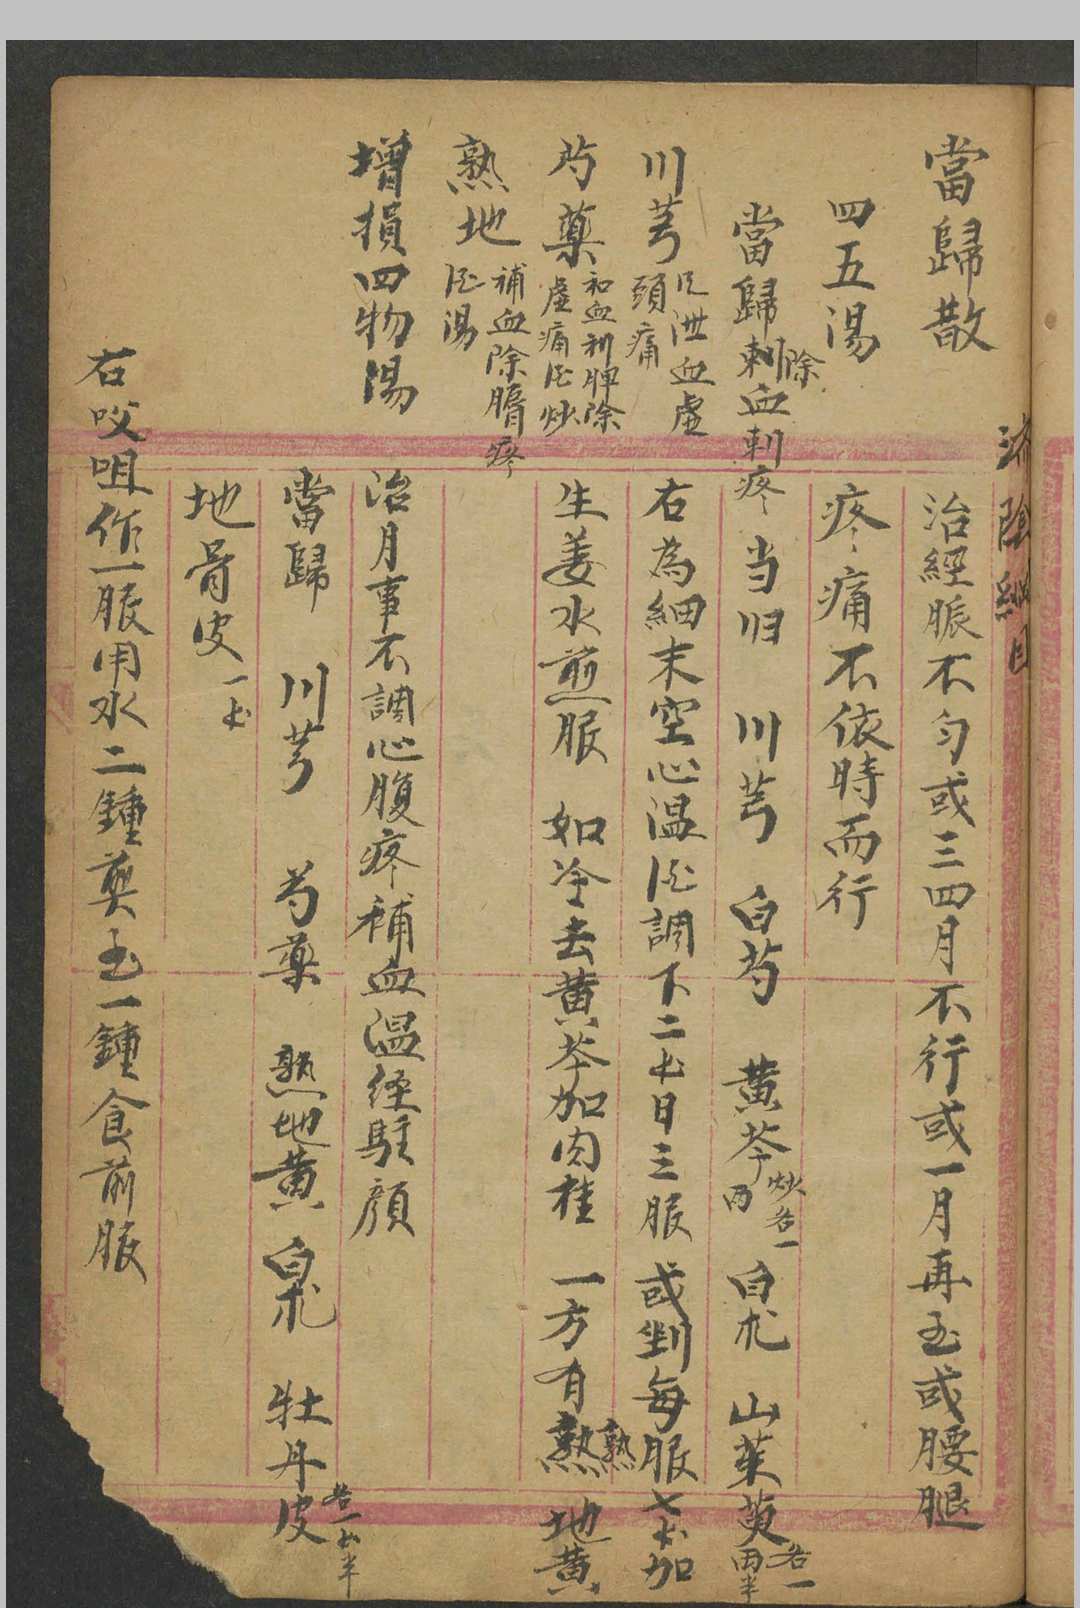 濟陰綱目
當歸散
治經脈不勻或三四月不行或一月再至或腰腿
四五湯
疼痛不依時而行
當歸刺血刺疼
除
当归 川芎 白芍 黄芩炒各一两 白朮 山茱萸各一两半
川芎
頭痛
右為細末空心温酒調下二七日三服或剉每服七七加
芍藥和血利脾除虛痛酒炒
生姜水煎服 如冷去黄芩加肉桂 一方有熟地黄
熟
熟地補血除臍疼酒湯
增損四物湯
治月事不調心腹疼補血温经駐顔
當歸 川芎 芍藥 熟地黄 白朮 牡丹皮各一半
地骨皮一
右㕮咀作一服用水二鍾煎至一鍾食前服